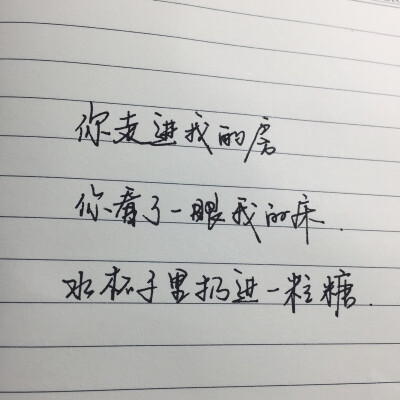 你走进我的房
你看了一眼我的床.
水杯子里扔进一粒糖.